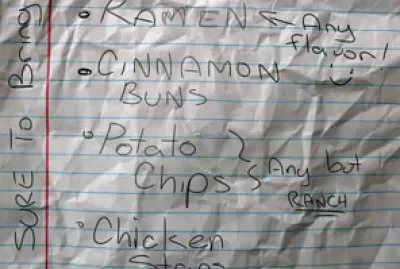 SURE To Bring
• RAMEN ← Any
flavor!
• CINNAMON :)
BUNS
• Potato
Chips } Any but
RANCH
• Chicken